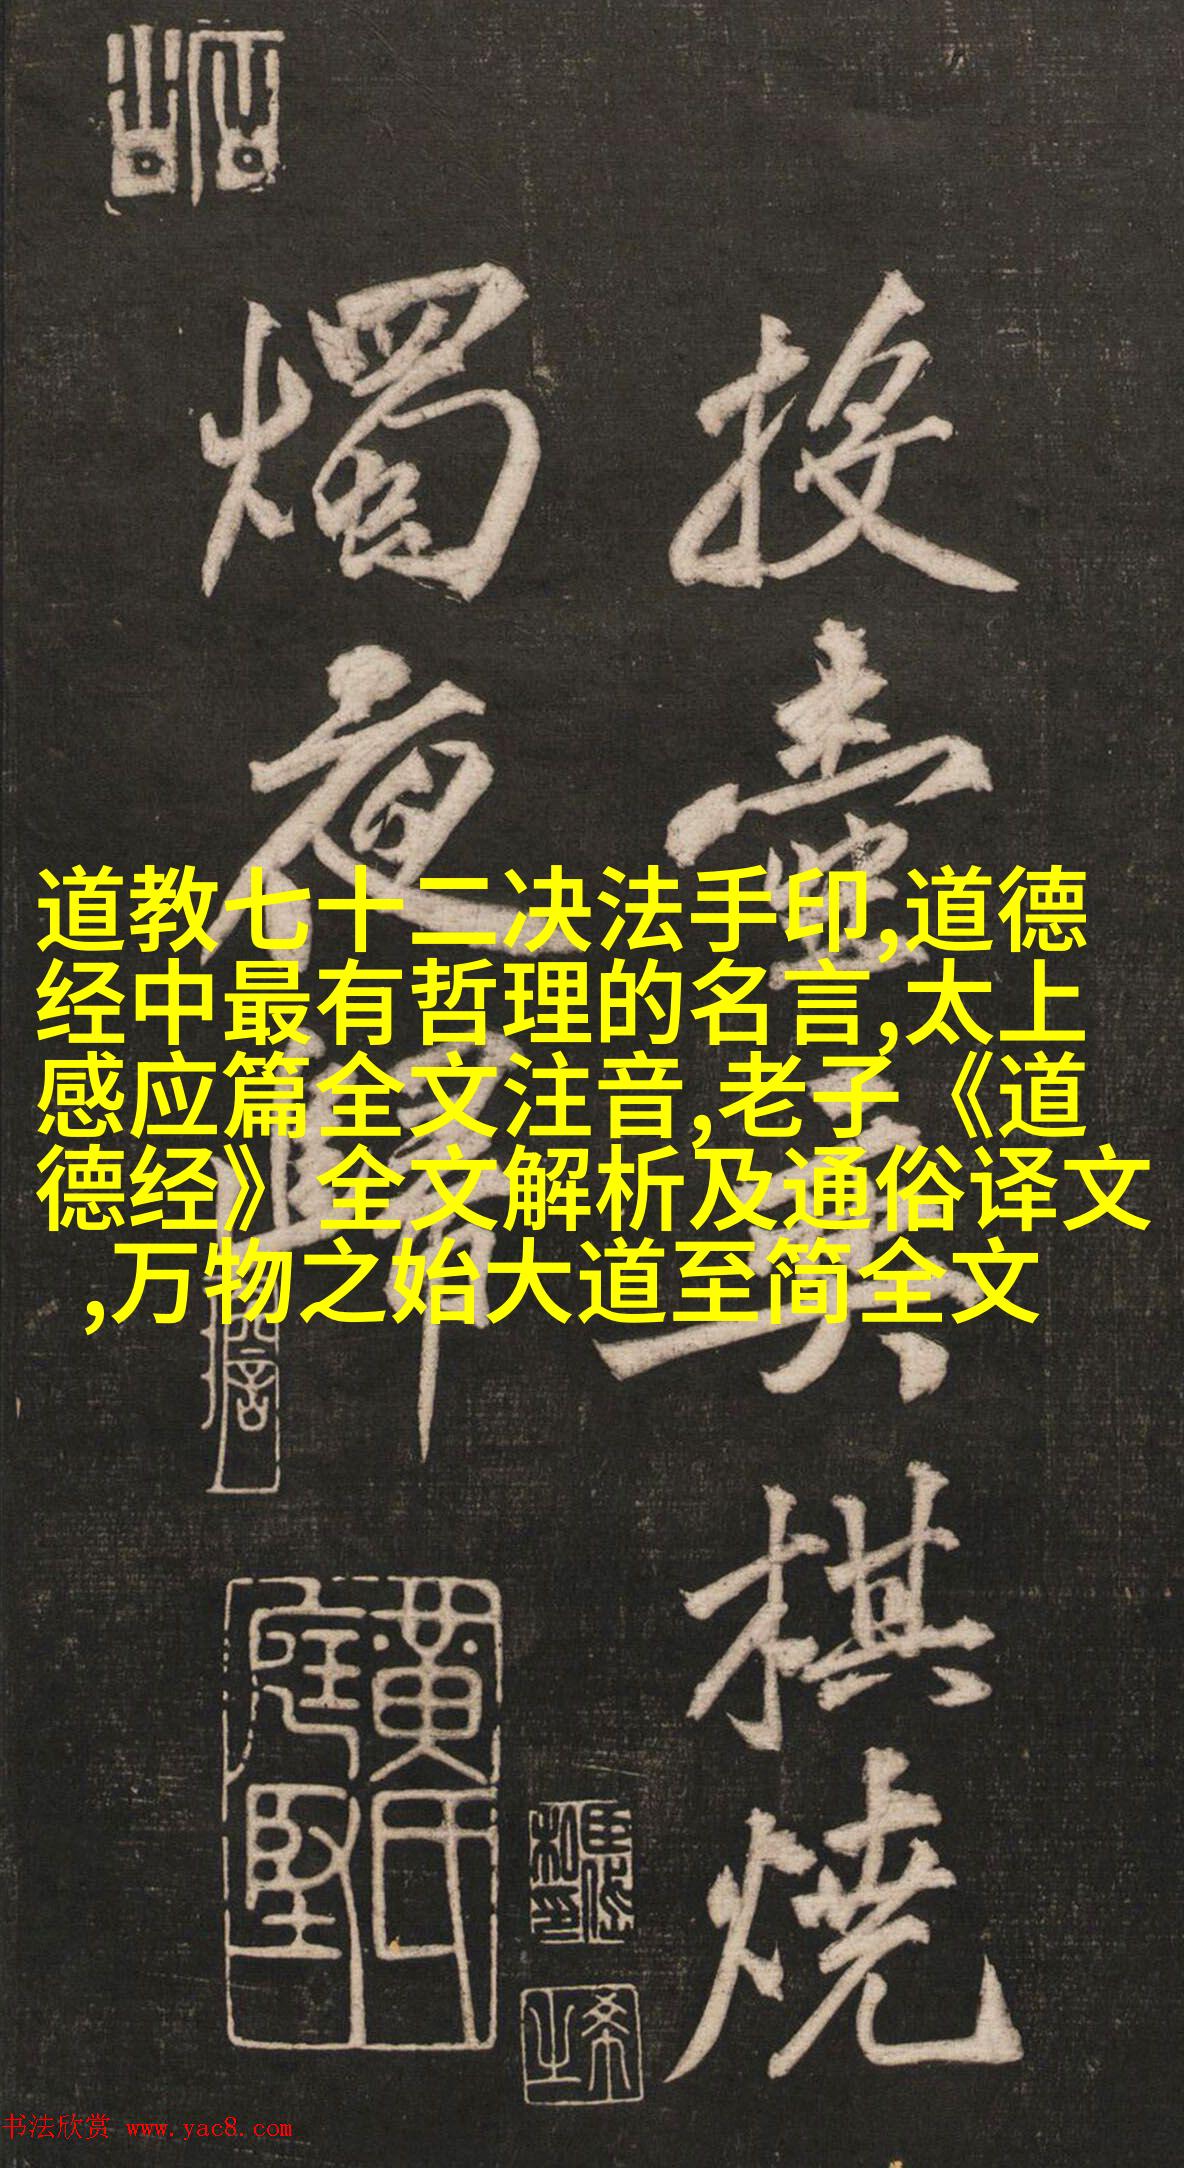 投壺與棋燒
燭夜歸
道教七十二决法手印,道德
经中最有哲理的名言,太上
感应篇全文注音,老子《道
德经》全文解析及通俗译文
,万物之始大道至简全文
黄氏庭堅
书法欣赏 www.yac8.com